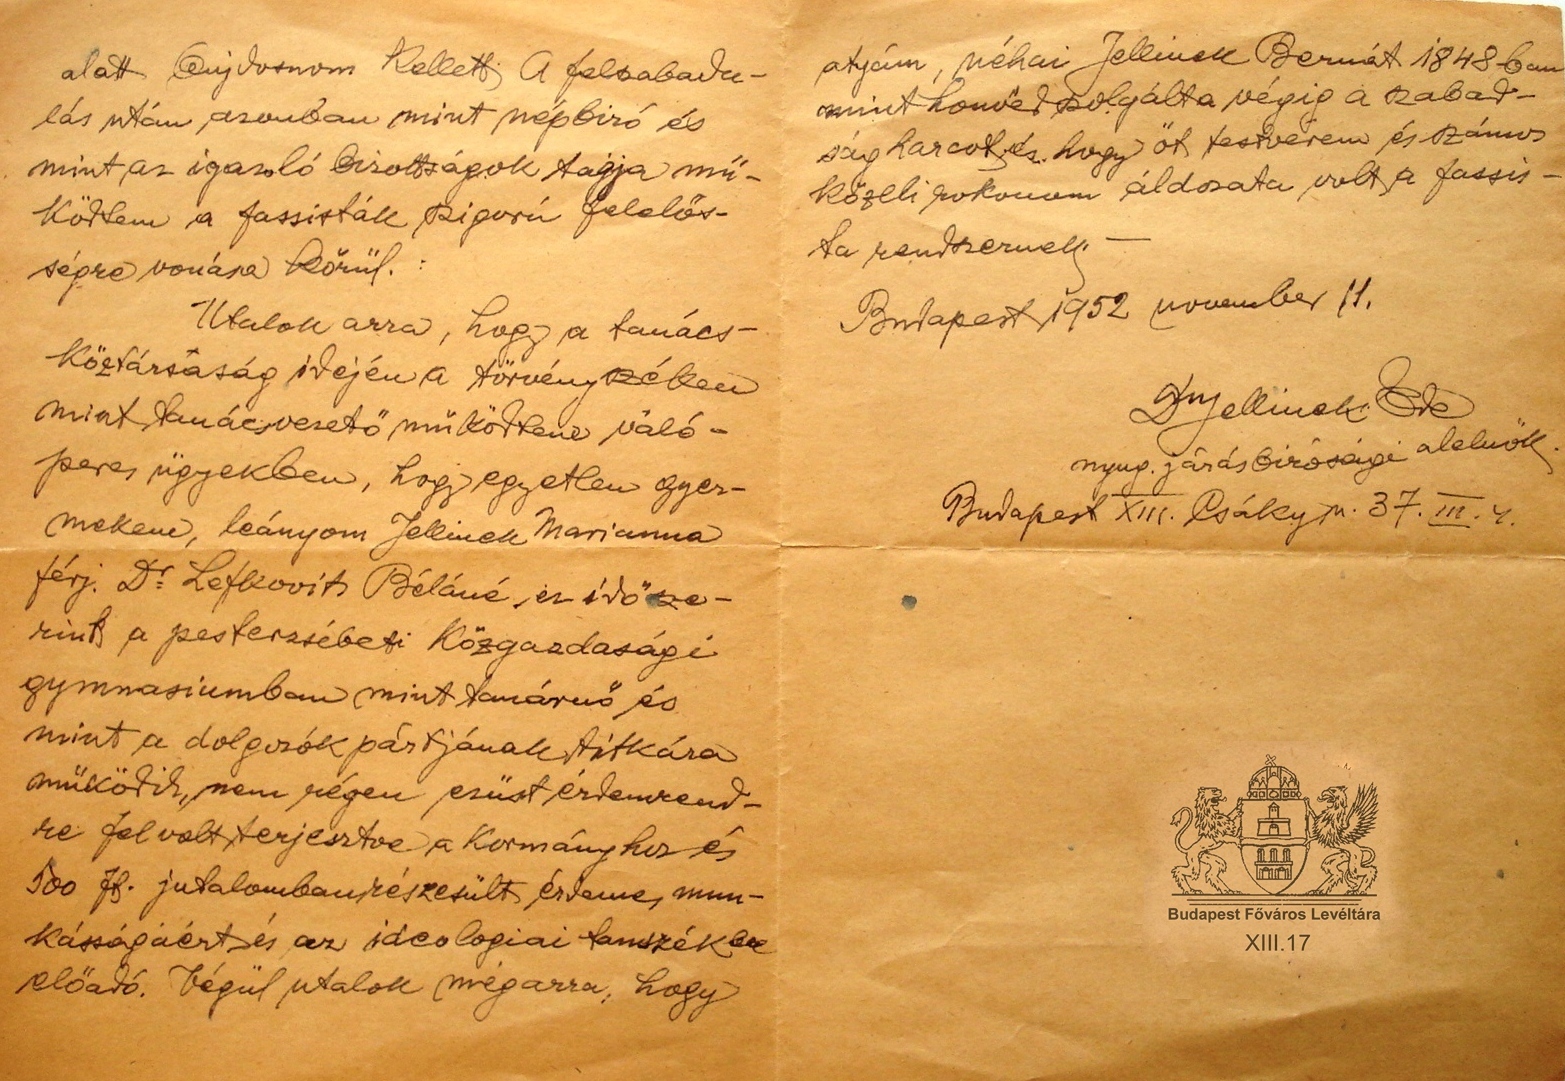 alatt bujdosnom kellett. A felszabadu-
lás után azonban mint népbiró és
mint az igazoló bizottságok tagja mű-
ködtem a fassisták szigorú felelős-
ségre vonása körül. :
Utalok arra, hogy a tanács-
köztársaság idején a törvényszéken
mint tanácsvezető működtem váló-
peres ügyekben, hogy egyetlen gyer-
mekem, leányom Jellinek Marianna
férj. Dr. Lefkovits Béláné ez idősze-
rint a pesterzsébeti Közgazdasági
gymnasiumban mint tanárnő és
mint a dolgozók pártjának titkára
működik, nem régen ezüst érdemrend-
re fel volt terjesztve a kormányhoz és
500 Ft. jutalomban részesült érdemes mun-
kásságáért és az ideologiai tanszékben
előadó. Végül utalok még arra, hogy
atyám, néhai Jellinek Bernát 1848-ban
mint honvéd szolgálta végig a szabad-
ság harcot, és hogy öt testvérem és számos
közeli rokonom áldozata volt a fassis-
ta rendszernek. —
Budapest, 1952 november 11.
Dr Jellinek Ede
nyug. járásbirósági alelnök.
Budapest XIII. Csáky u. 37. III. 4.
Budapest Főváros Levéltára
XIII.17